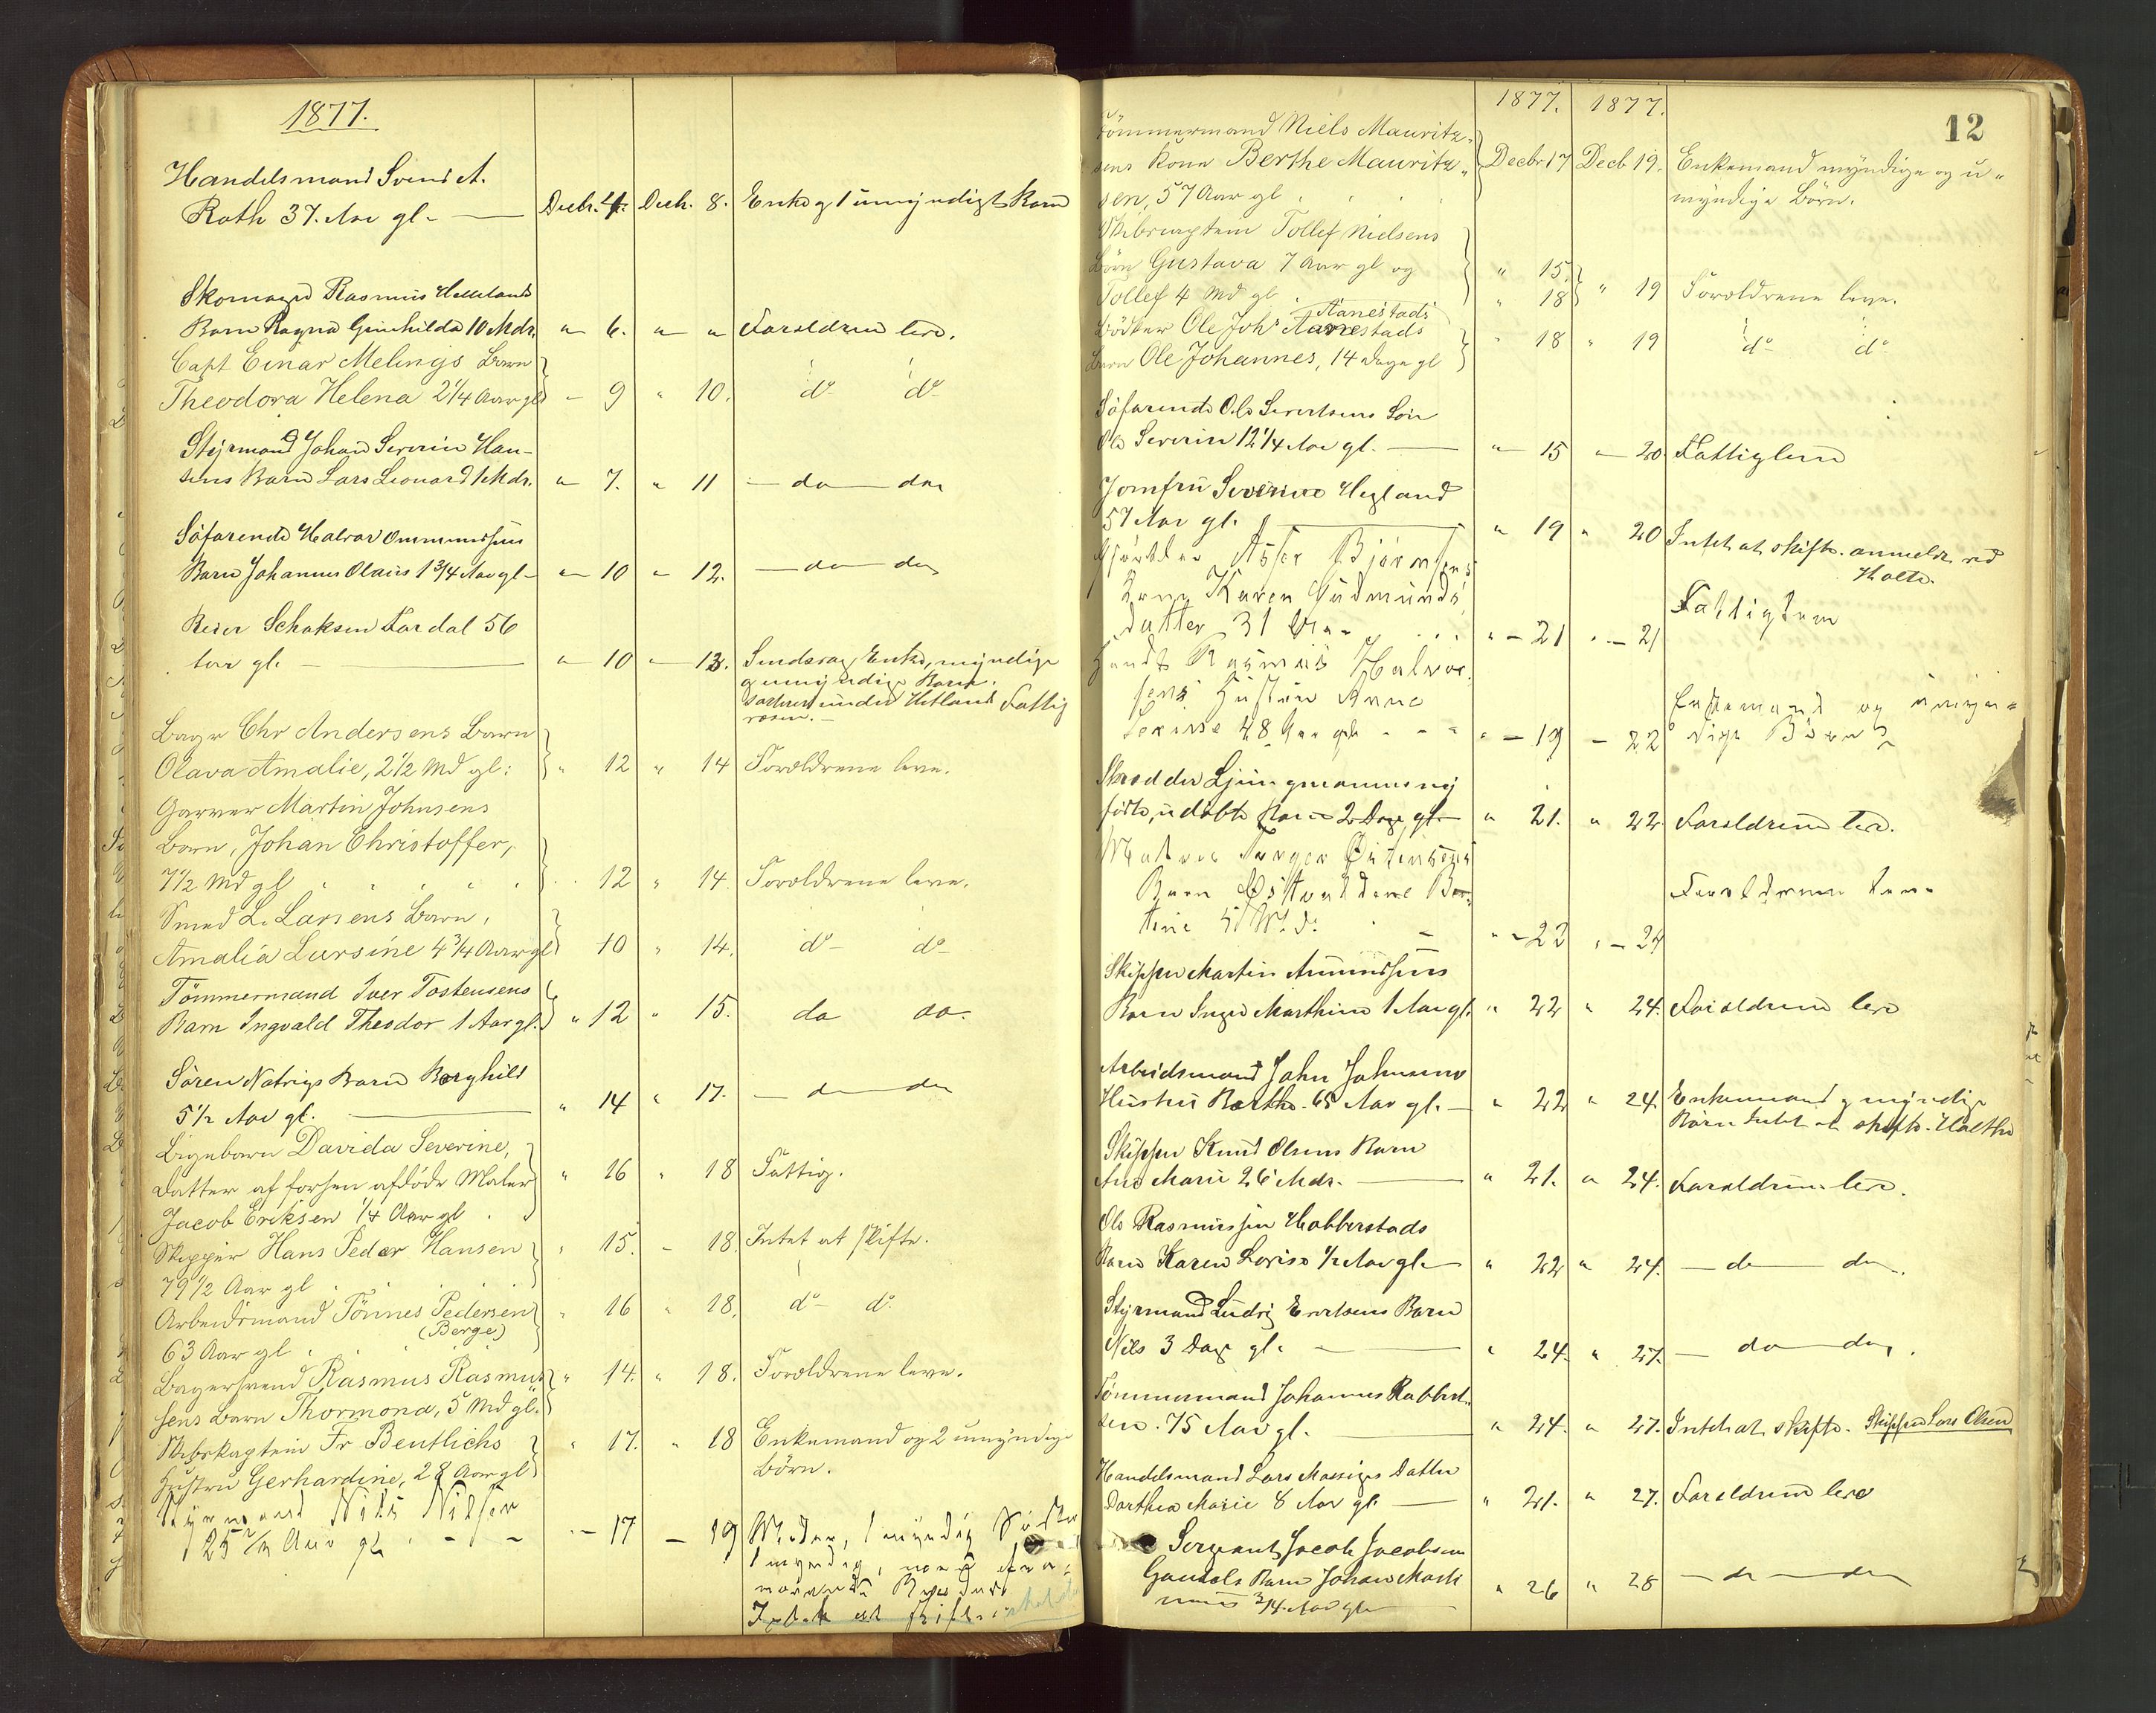 1877.
Handelsmand Svend A.
Roth 37. Aar gl. — Decbr. 4. Decb. 8. Enke og 1 umyndigt Barn
Skomager Rasmus Hellelands
Barn Ragna Gunhilda 10 Mdr. " 6. " " Forældrene leve.
Capt Einar Melings Barn
Theodora Helena 2 1/4 Aar gl " 9 " 10. do do
Styrmand Johan Severin Han-
sens Barn Lars Leonard 1 Mdr. " 7. " 11 — do — do
Söfarende Halvor Ommundsens
Barn Johannes Olaus 1 3/4 Aar gl — " 10 " 12. — do — do
Reier Schaksen Fardal 56
Aar gl. — " 10 " 13. Enke, myndige
og umyndige Börn.
under Hetland Fattig
væsen. —
Bager Chr Andersens Barn
Olava Amalie, 2 1/2 Md gl: " 12 " 14 Forældrene leve.
Garver Martin Johnsens
Barn, Johan Christoffer,
7 1/2 Md gl . . . . 12 " 14. Forældrene leve.
Smed L. Larsens Barn,
Amalia Lursine 4 3/4 Aar gl 10 " 14. do do
Tömmermand Iver Tostensens
Barn Ingvald Theodor 1 Aar gl. " 12 " 15. do do.
Sören Natvigs Barn Borghild
5 1/2 Aar gl. — " 14 " 17. — do do
Pigebarn Davida Severine,
Datter af forhen afdöde Maler " 16 " 18 Fattig.
Jacob Eriksen 1/4 Aar gl .
Skipper Hans Peder Hansen " 15. " 18. Intet at skifte.
79 1/2 Aar gl . . . .
Arbeidsmand Tönnes Pedersen " 16 " 18. do do
(Berge)
63 Aar gl . . . .
Bagersvend Rasmus Rasmus " 14. " 18. Forældrene leve.
sens Barn Thormona, 5 Md gl.
Skibskaptein Fr Bentlichs " 17. " 18 Enkemand og 2 umyndige
Hustru Gerhardine, 28 Aar gl Börn.
Styrmand Nils Nilsen
25 1/2 Aar gl . - - " — 17 — 19 Moder, 1 myndig Söster
1 myndig,
Intet at skifte.
12
1877. 1877.
Tömmermand Niels Mauritz-
sens Kone Berthe Mauritz- Decbr 17 Decb 19. Enkemand myndige og u-
sen, 57 Aar gl . . . . myndige Börn.
Skibscaptein Tollef Nielsens
Börn Gustava 7 Aar gl og " 15.
Tollef 4 Md gl . " 18 " 19 Forældrene leve.
Aanestads
Bödker Ole Johs Aanestads
Barn Ole Johannes, 14 Dage gl " 18 " 19 do do
Söfarende Ole Sivertsens Sön
Ole Severin 12 1/4 Aar gl. — " 15 " 20 Fattiglem
Jomfru Severine Hegland
57 Aar gl. — " 19 " 20 Intet at skifte. anmeldt ved
Holte.
Asser Björnsens
Kone Karen Gudmunds
datter 31 Aar . . . " — 21 " — 21 Fattiglem
Rasmus Halvor
sens Hustru Anna
Serine 48 Aar gl - - - " — 19 — 22 Enkemand og umyn-
dige Börn
Skrædder Ljungmanns ny
födte, udöbte Barn 2 Dage gl — " 21. " 22. Forældrene leve.
Torger Östensens
Barn Ber-
tine 5 Md. — " — 22 " — 24 Forældrene leve
Skipper Martin Amundsens
Barn Inger Marthine 1 Aar gl. " 22 " 24. Forældrene leve
Arbeidsmand John Johnsens
Hustru Berthe. 65 Aar gl. — " 22 " 24. Enkemand og myndige
Börn Intet at skifte. Holthe
Skipper Knud Olsens Barn
Ane Marie 26 Mdr. — " 21. " 24. Forældrene leve.
Ole Rasmussen Hobberstads
Barn Karen Lovise 1/2 Aar gl — " 22 " 24. — do — do
Styrmand Ludvig Evertsens Barn
Nils 3 Dage gl. — " 24. " 27. — do do.
Tömmermand Johannes Robbert-
sen. 75 Aar gl. — " 24. " 27. Intet at skifte. Skipper Lars Olsen
Handelsmand Lars Massiges Datter
Dorthea Marie 8 Aar gl. — " 21. " 27. Forældrene leve
Sergeant Jacob Jacobsen
Gausels Barn Johan Mart
inus 3/4 Aar gl — " 26 " 28 — do — do